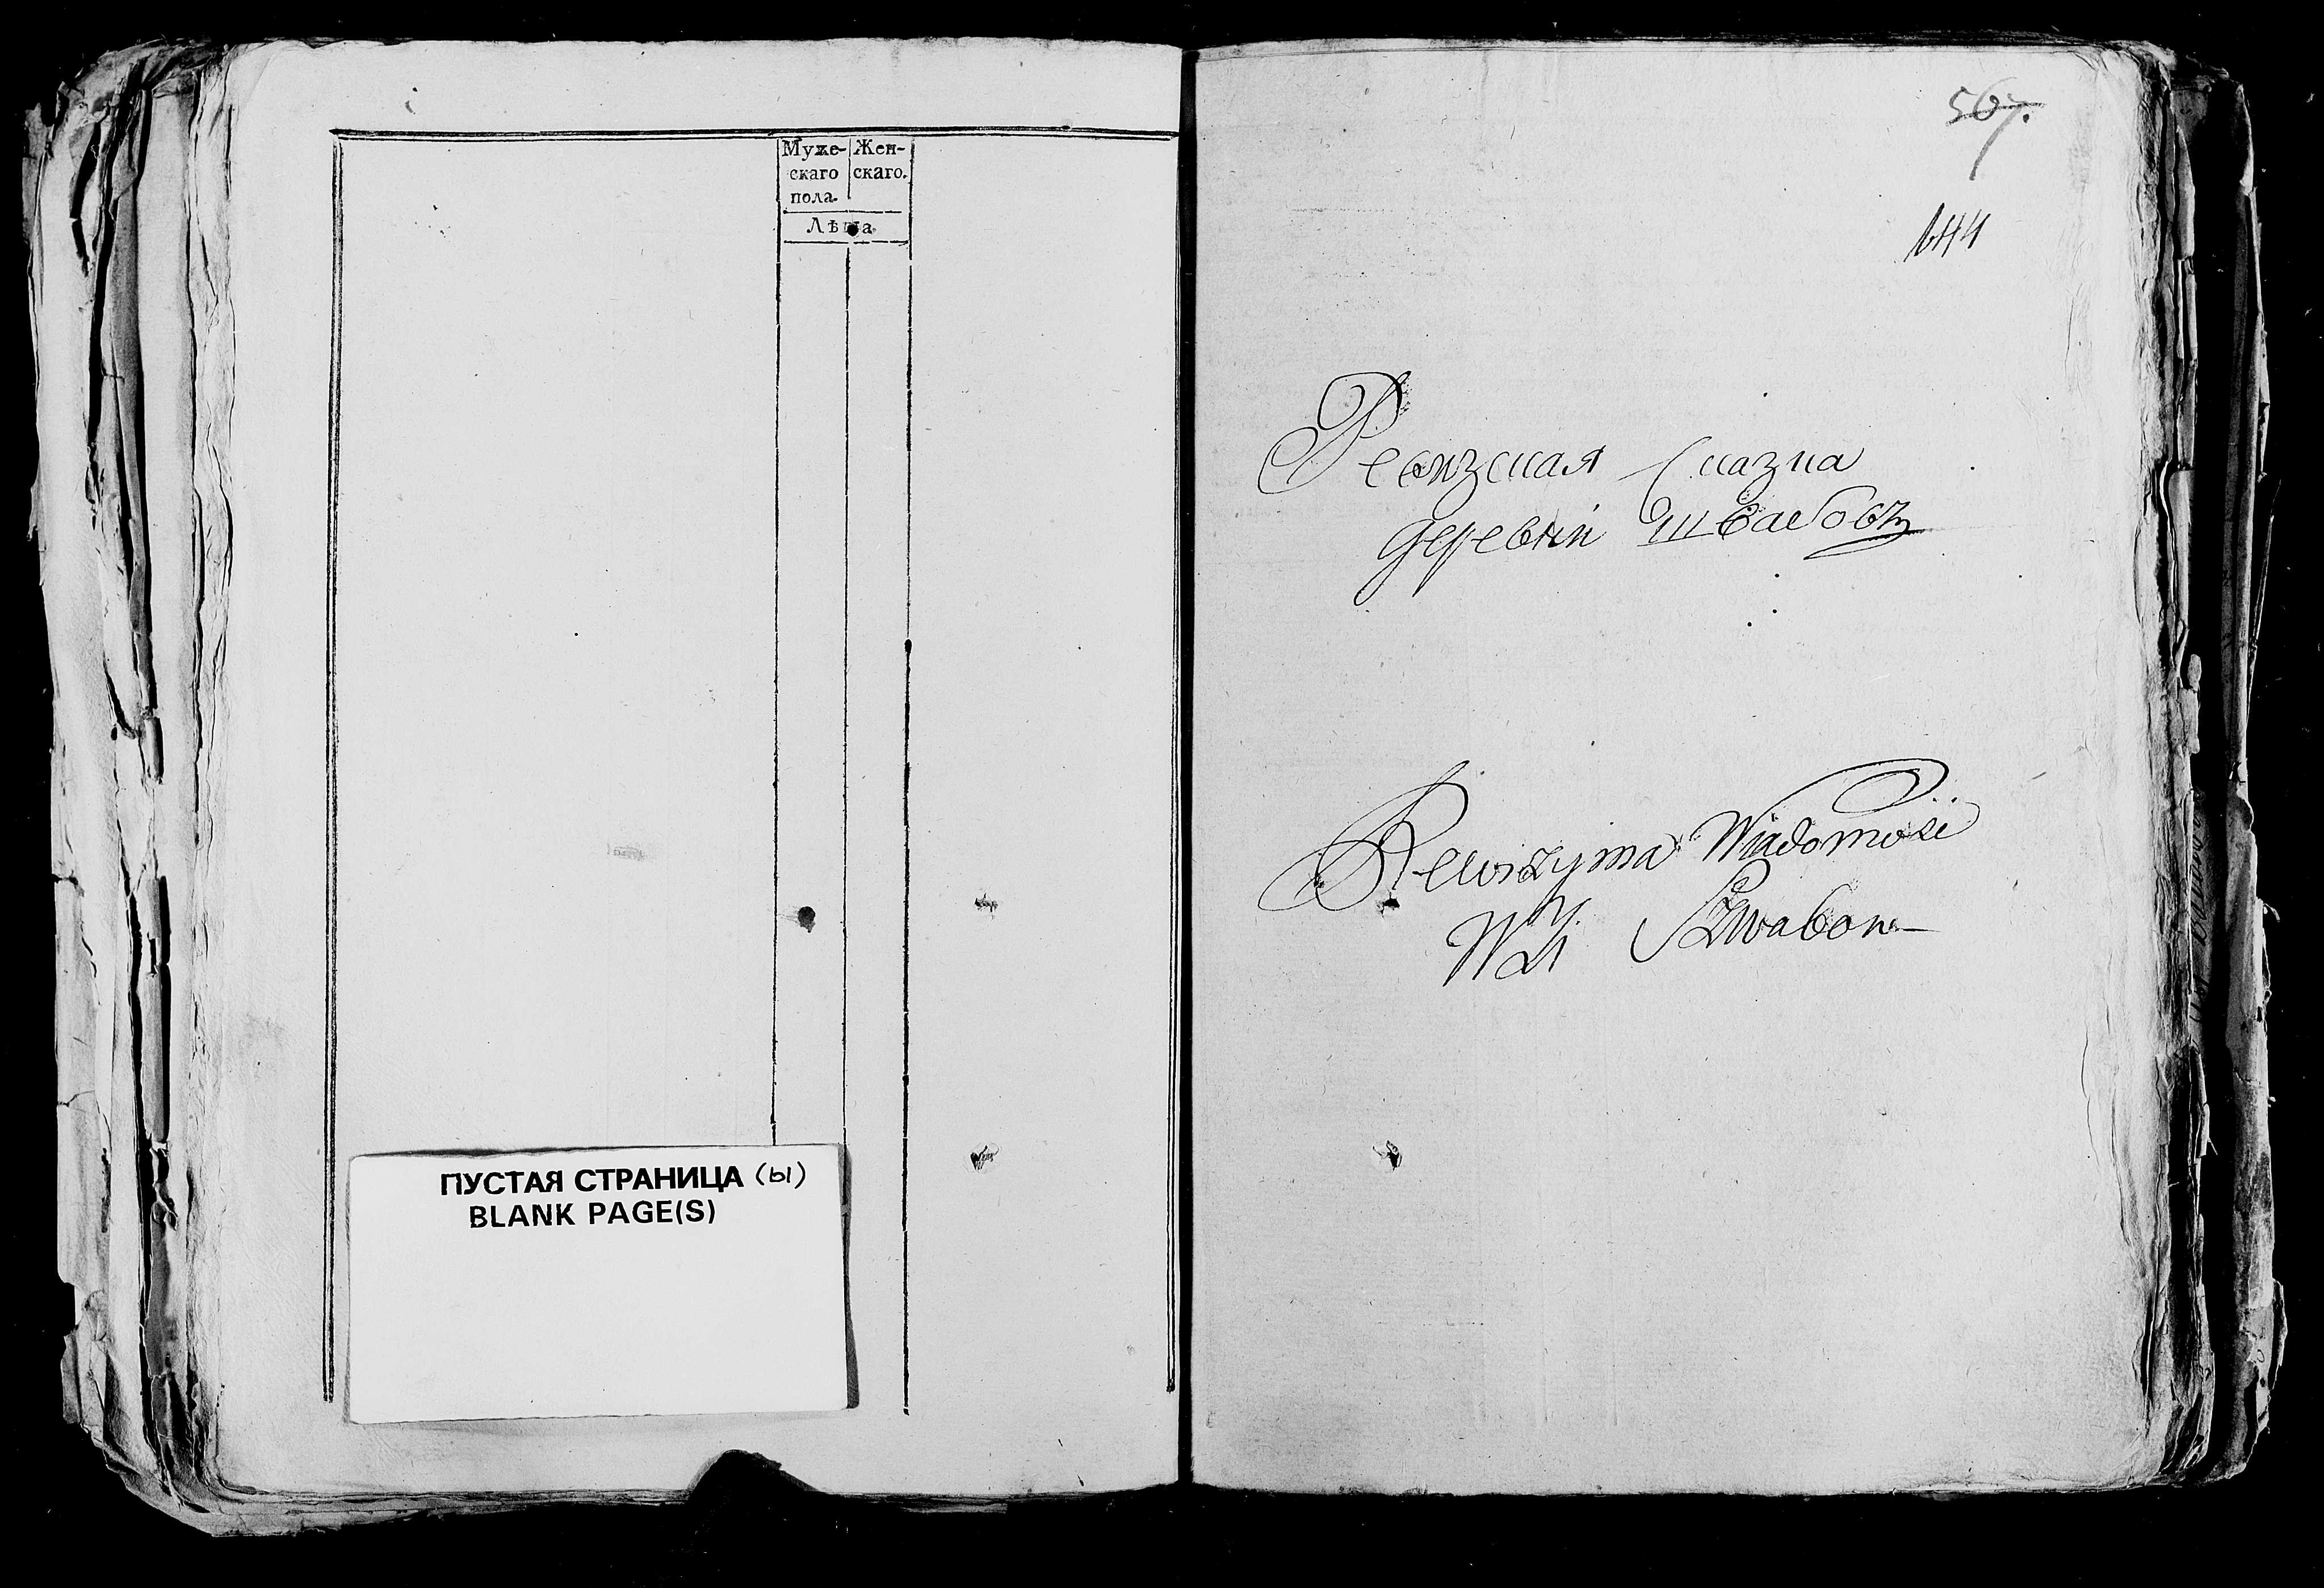 Муже- Жен-
скаго скаго.
пола.
Лѣта
ПУСТАЯ СТРАНИЦА (ы)
BLANK PAGE(S)
567.
644
Ревизская Сказка
деревни Швабовъ
Rewizyina Wiadomość
Wsi Szwabow